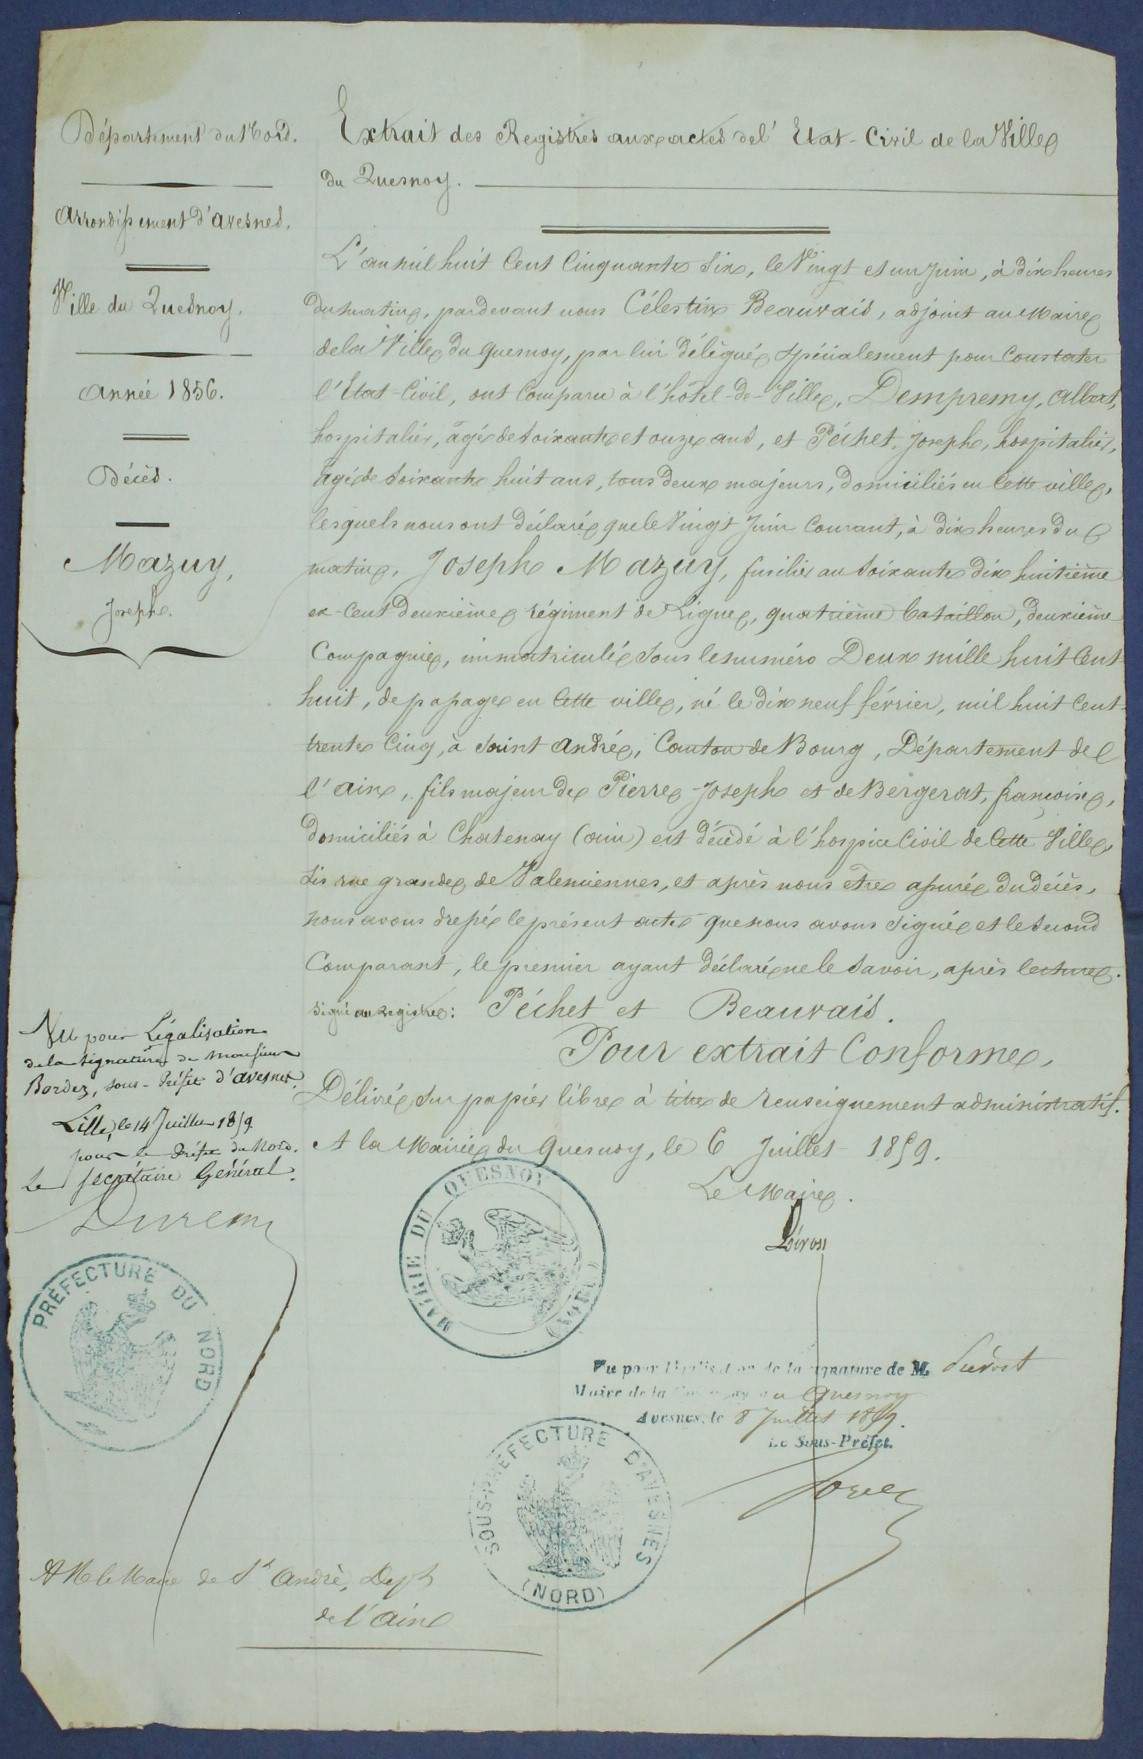 Département du Nord.
Arrondissement d'Avesnes.
Ville du Quesnoy.
Année 1856.
Décès.
Mazuy,
Joseph.
Extrait des Registres aux actes de l'Etat-Civil de la Ville
du Quesnoy.
L'an mil huit Cent Cinquante Six, le Vingt et un Juin, à dix heures
du matin, pardevant nous Célestin Beauvais, adjoint au Maire
de la Ville du Quesnoy, par lui délégué spécialement pour Constater
l'Etat-Civil, ont Comparu à l'hôtel-de-Ville, Dempremy, Albert,
hospitalier, âgé de Soixante et onze ans, et Péchet, Joseph, hospitalier,
âgé de Soixante huit ans, tous deux majeurs, domiciliés en Cette ville,
lesquels nous ont déclaré que le Vingt Juin Courant, à dix heures du
matin, Joseph Mazuy, fusilier au Soixante dix huitième
ex-Cent deuxième régiment de Ligne, quatrième bataillon, deuxième
Compagnie, immatriculé Sous le numéro Deux mille huit Cent
huit, de passage en Cette ville, né le dix neuf février, mil huit Cent-
trente Cinq, à Saint André, Canton de Bourg, Département de
l'Ain, fils majeur de Pierre-Joseph et de Bergerat, françoise,
domiciliés à Chatenay (ain) est décédé à l'hospice Civil de Cette Ville,
Sis rue grande de Valenciennes, et après nous être assuré du décès,
nous avons dressé le présent acte que nous avons signé et le Second
Comparant, le premier ayant déclaré ne le Savoir, après lecture.
Signé au registre: Péchet et Beauvais.
Pour extrait Conforme,
Délivré Sur papier libre à titre de renseignement administratif.
A la Mairie du Quesnoy, le 6 Juillet 1859.
Le Maire.
MAIRIE DU QUESNOY
(NORD)
Vu pour Légalisation
de la Signature de Monsieur
Bordez, Sous-Préfet d'Avesnes.
Lille, le 14 Juillet 1859
pour le Préfet du Nord.
Le Secrétaire Général.
PRÉFECTURE DU NORD
Vu pour légalisation de la signature de M.
Maire de la Commune du Quesnoy
Avesnes, le 8 Juillet 1859.
Le Sous-Préfet.
SOUS-PRÉFECTURE D'AVESNES
(NORD)
A M le Maire de St André, Dept
de l'Ain